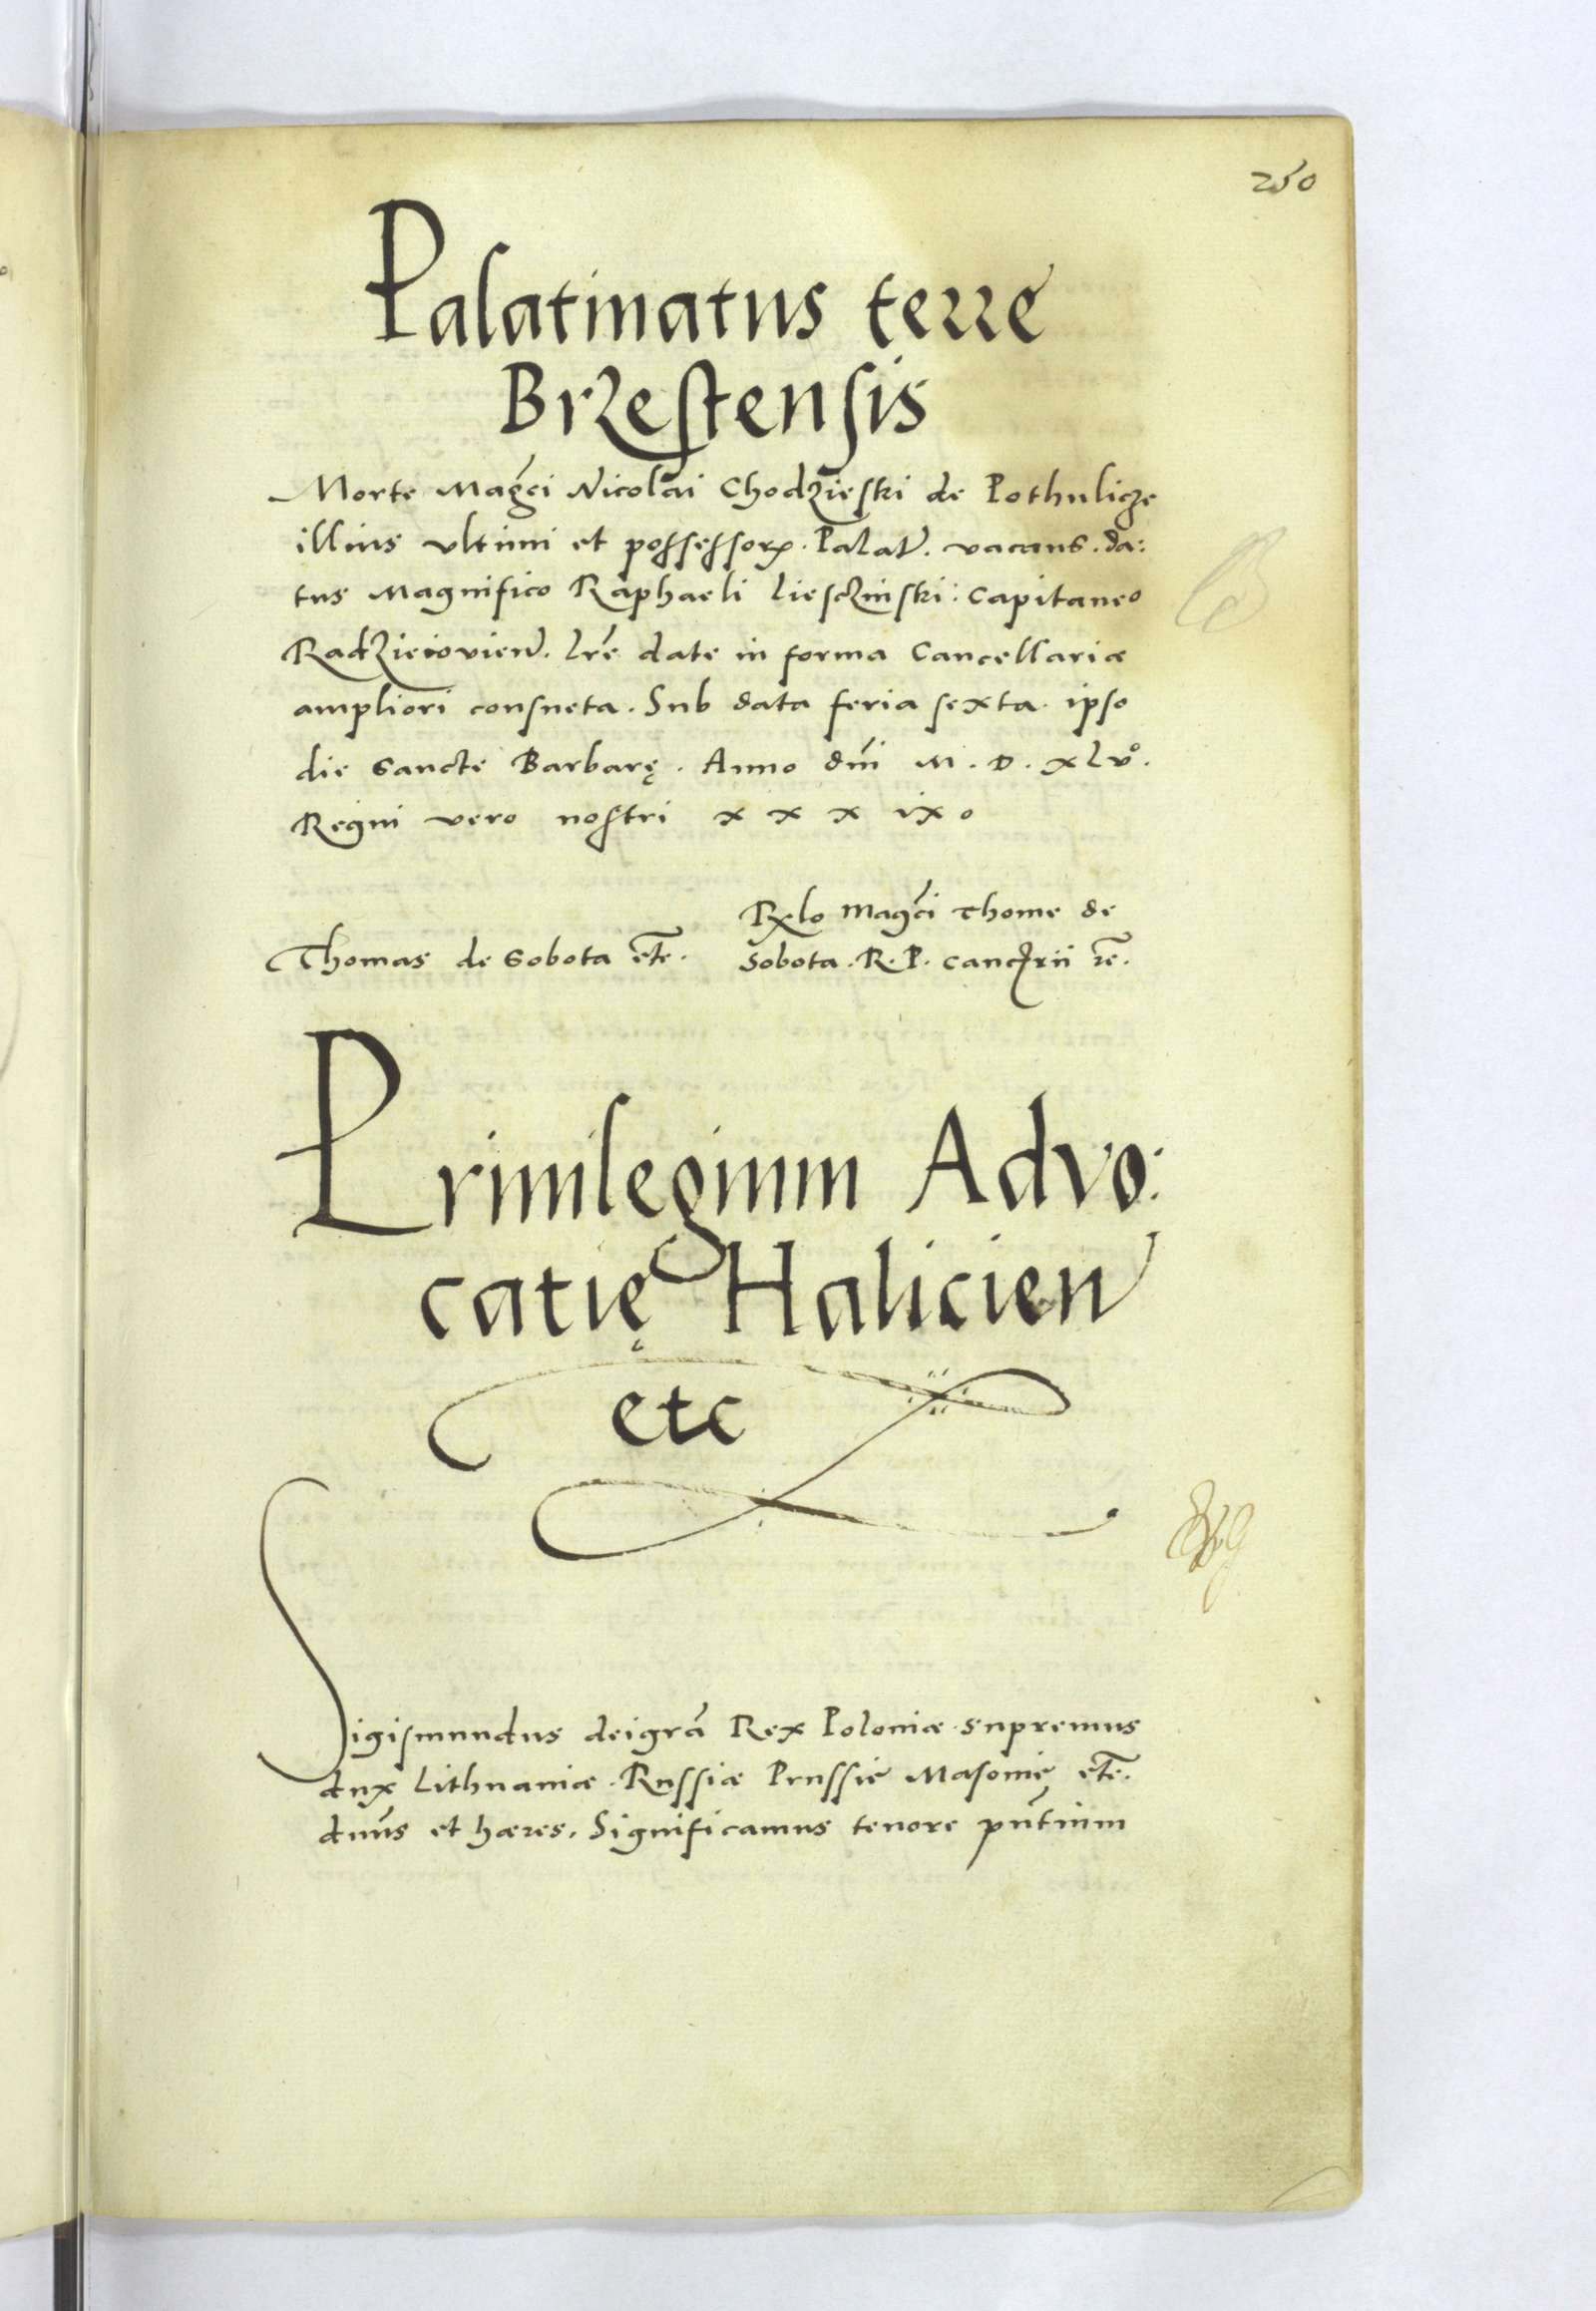 250
Palatinatus terre
Brzestensis
Morte Magci Nicolai Chodzieski de Pothulicze
illius ultimi et possessor. Palat. vacans. da:
tus Magnifico Raphaeli Liesczinski: Capitaneo
Radzieiovien. lre date in forma Cancellariæ
ampliori consueta. Sub data feria sexta. ipso
die Sancte Barbarę. Anno dni M. D. xlvo.
Regni vero nostri x x x ix o
Rlo Magci Thome de
Thomas de Sobota etc. Sobota. R. P. Cancrii rc.
Privilegium Advo:
catię Halicien
etc
Sigismundus dei gra Rex Poloniæ supremus
dux Lithuaniæ. Russiæ Prussie Masovię etc.
dnus et hæres. Significamus tenore pntium